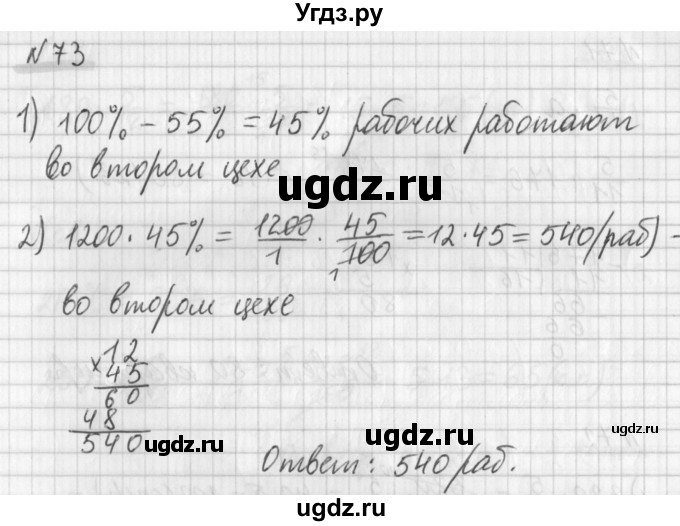 Угдз.ру
№73
1) 100% - 55% = 45% рабочих работают
во втором цехе
ugdz.ru
2) 1200 · 45% = 1200/1 · 45/100 = 12 · 45 = 540 (раб) -
1
во втором цехе
×12
45
60
48
540
ugdz.ru
ugdz.ru
ugdz.ru
Ответ: 540 раб.
ugdz.ru